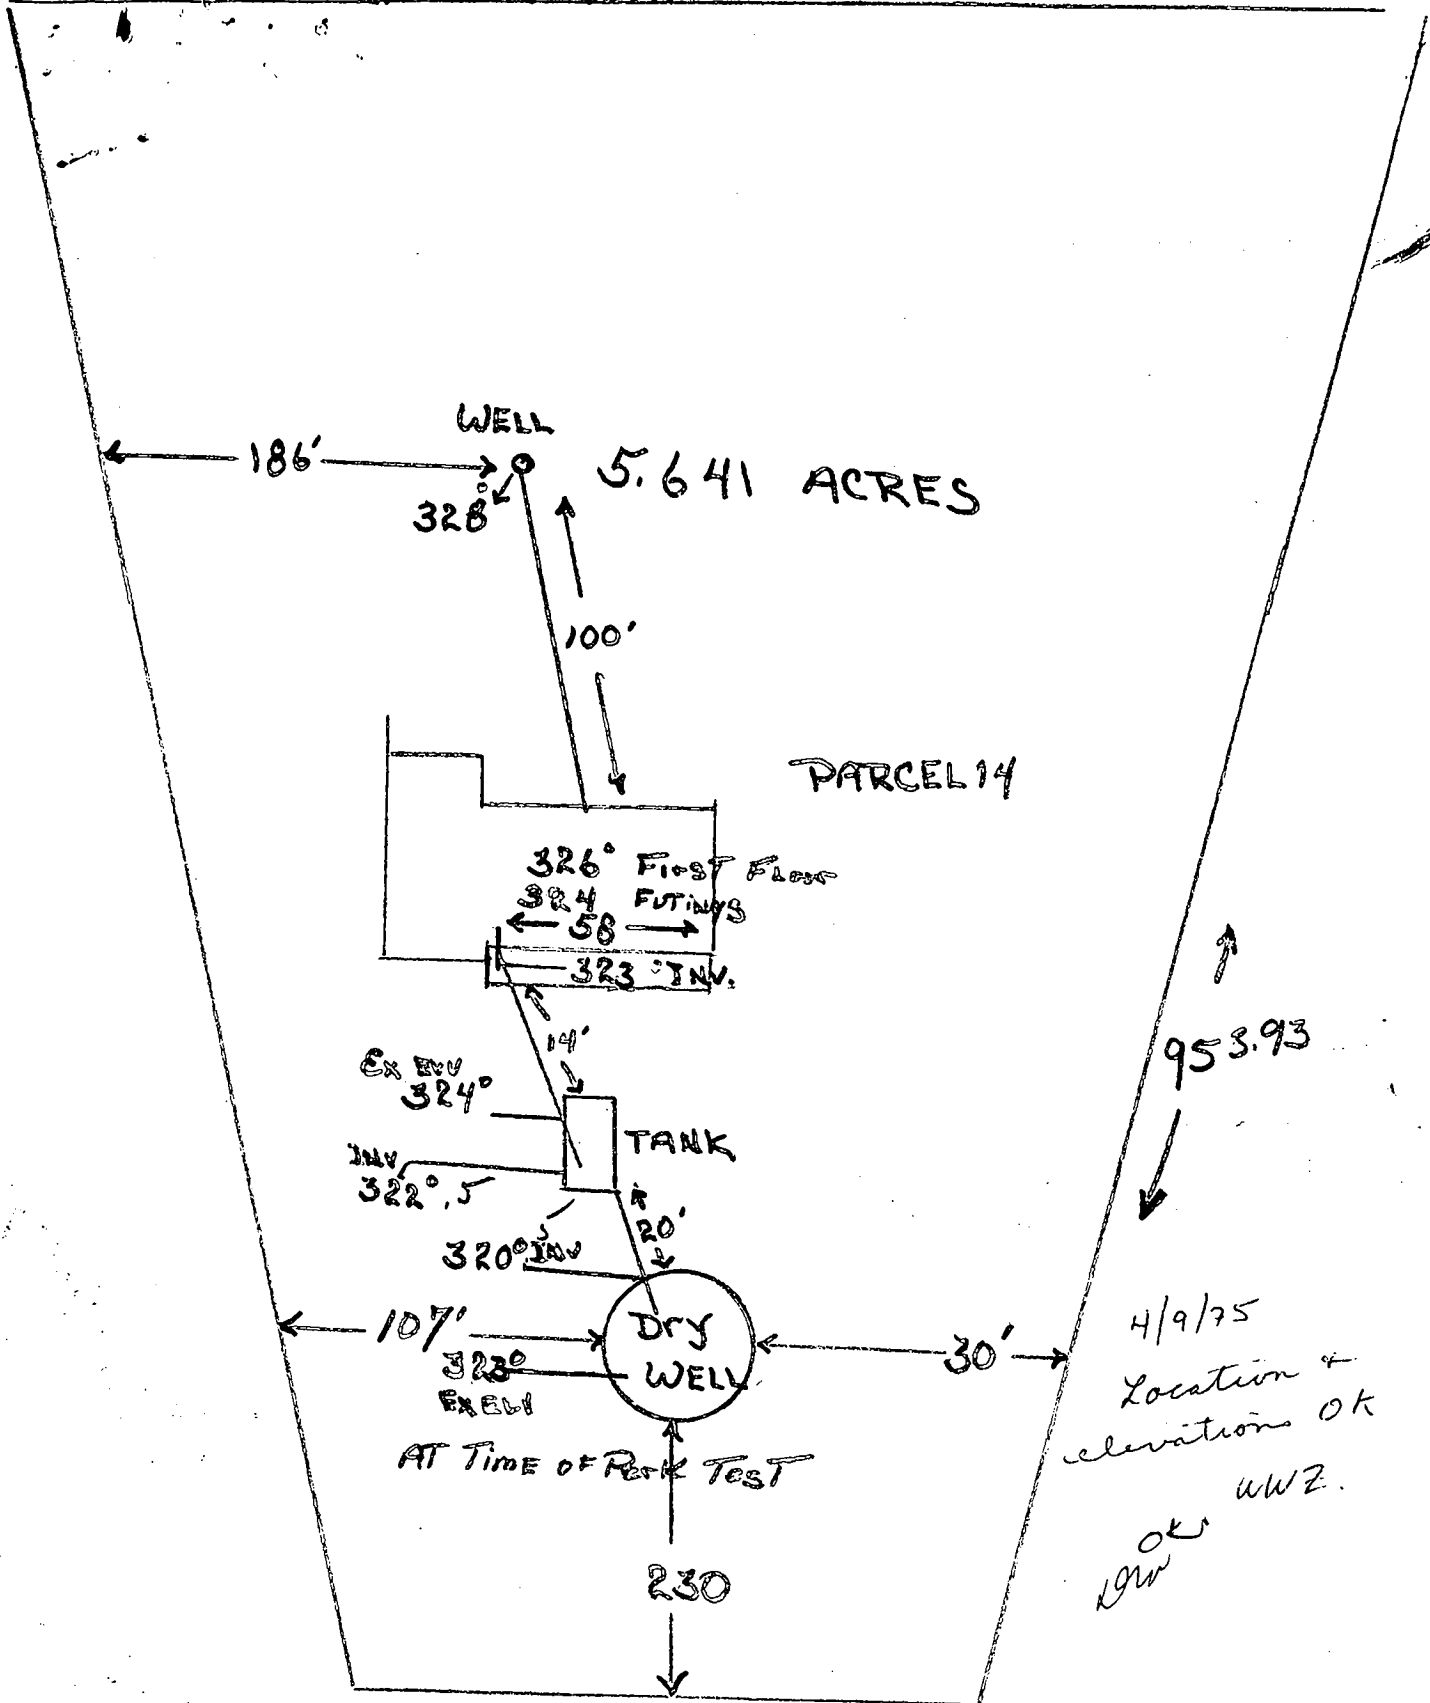 WELL
186'
5.641 ACRES
328°
100'
PARCEL 14
326° FIRST Floor
324 FUTINGS
58
323° INV.
14'
Ex Elv
324°
TANK
INV
322°.5
20'
320°.5 INV
953.93
107'
Dry
WELL
30'
323°
EX ELV
AT TIME OF Perk TesT
4/9/75
Location &
elevations OK
WWZ.
OK
230